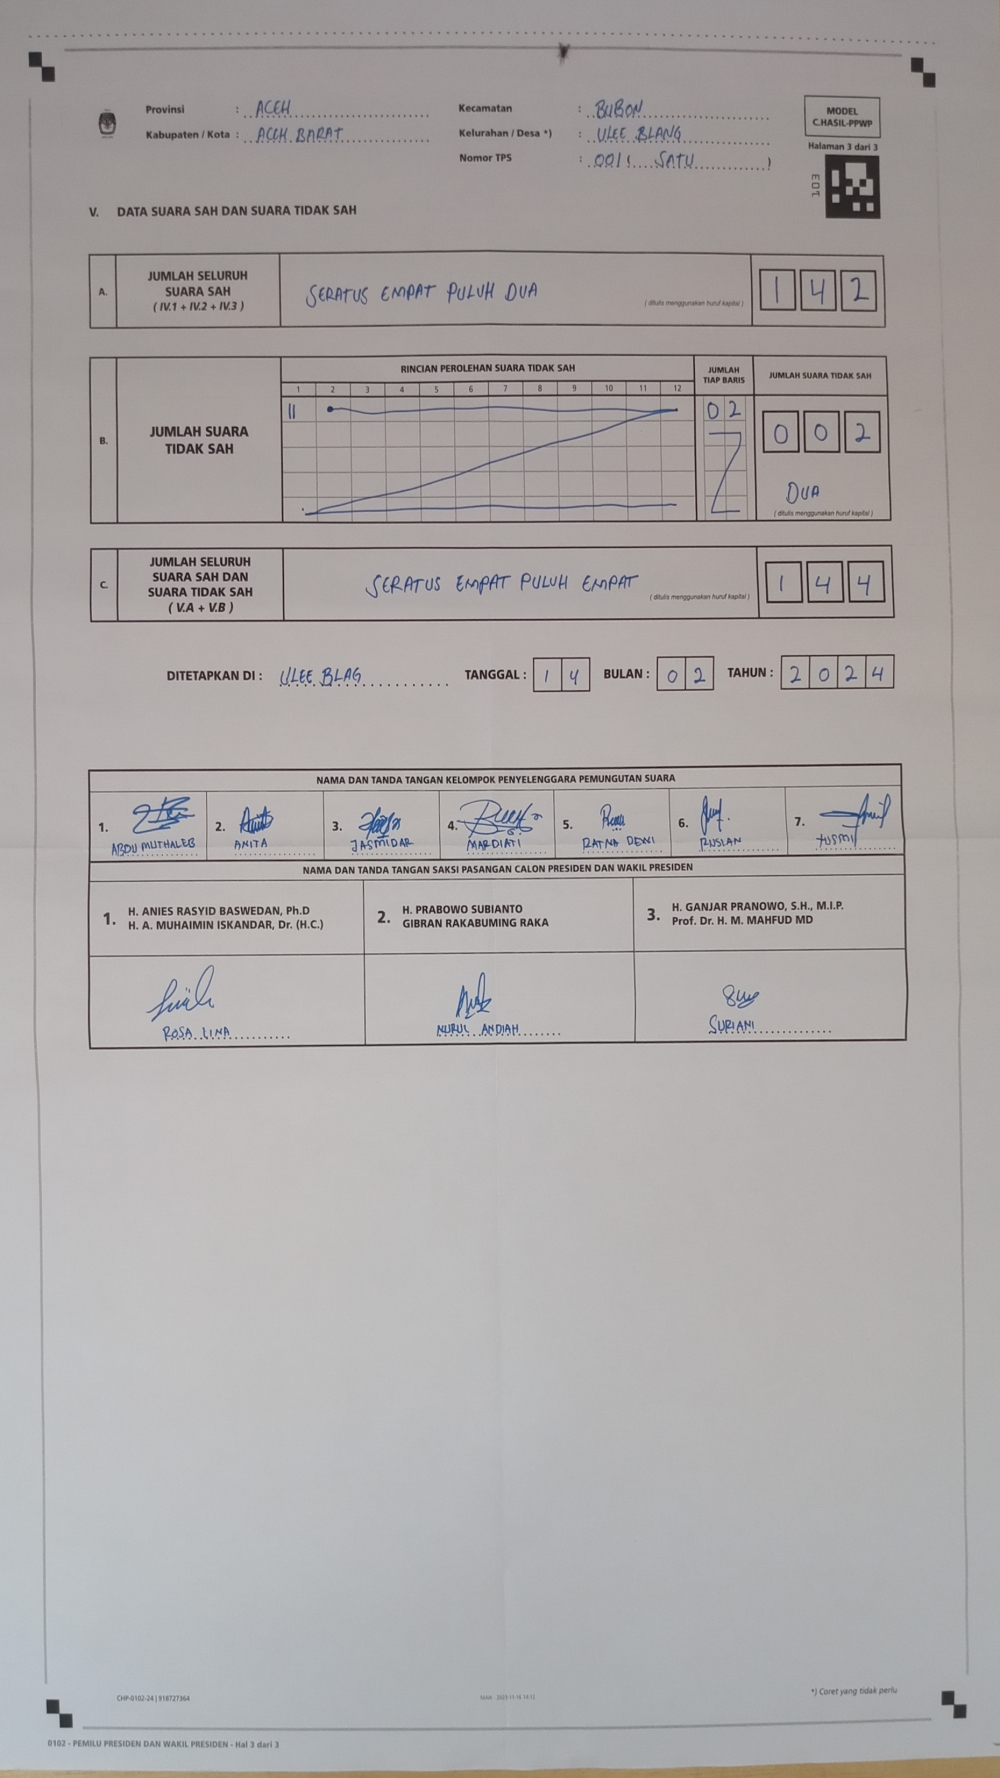 Provinsi : ACEH
Kabupaten / Kota : ACEH BARAT
Kecamatan : BUBON
Kelurahan / Desa *) : ULEE BLANG
Nomor TPS : 001 ( SATU )
MODEL
C.HASIL-PPWP
Halaman 3 dari 3
V. DATA SUARA SAH DAN SUARA TIDAK SAH
A.
JUMLAH SELURUH
SUARA SAH
( IV.1 + IV.2 + IV.3 )
SERATUS EMPAT PULUH DUA
( ditulis menggunakan huruf kapital )
1 4 2
B.
JUMLAH SUARA
TIDAK SAH
RINCIAN PEROLEHAN SUARA TIDAK SAH
1 2 3 4 5 6 7 8 9 10 11 12
JUMLAH
TIAP BARIS
0 2
JUMLAH SUARA TIDAK SAH
0 0 2
DUA
( ditulis menggunakan huruf kapital )
C.
JUMLAH SELURUH
SUARA SAH DAN
SUARA TIDAK SAH
( V.A + V.B )
SERATUS EMPAT PULUH EMPAT
( ditulis menggunakan huruf kapital )
1 4 4
DITETAPKAN DI : ULEE BLAG TANGGAL : 1 4 BULAN : 0 2 TAHUN : 2 0 2 4
NAMA DAN TANDA TANGAN KELOMPOK PENYELENGGARA PEMUNGUTAN SUARA
1. 2. 3. 4. 5. 6. 7.
ABDU MUTHALEB ANITA JASMIDAR MARDIATI RATNA DEWI RUSLAN YUSMI
NAMA DAN TANDA TANGAN SAKSI PASANGAN CALON PRESIDEN DAN WAKIL PRESIDEN
1. H. ANIES RASYID BASWEDAN, Ph.D
H. A. MUHAIMIN ISKANDAR, Dr. (H.C.)
2. H. PRABOWO SUBIANTO
GIBRAN RAKABUMING RAKA
3. H. GANJAR PRANOWO, S.H., M.I.P.
Prof. Dr. H. M. MAHFUD MD
ROSA LINA
NURUL ANDIAH
SURIANI
CHP-0102-24 | 918727364
*) Coret yang tidak perlu
0102 - PEMILU PRESIDEN DAN WAKIL PRESIDEN - Hal 3 dari 3